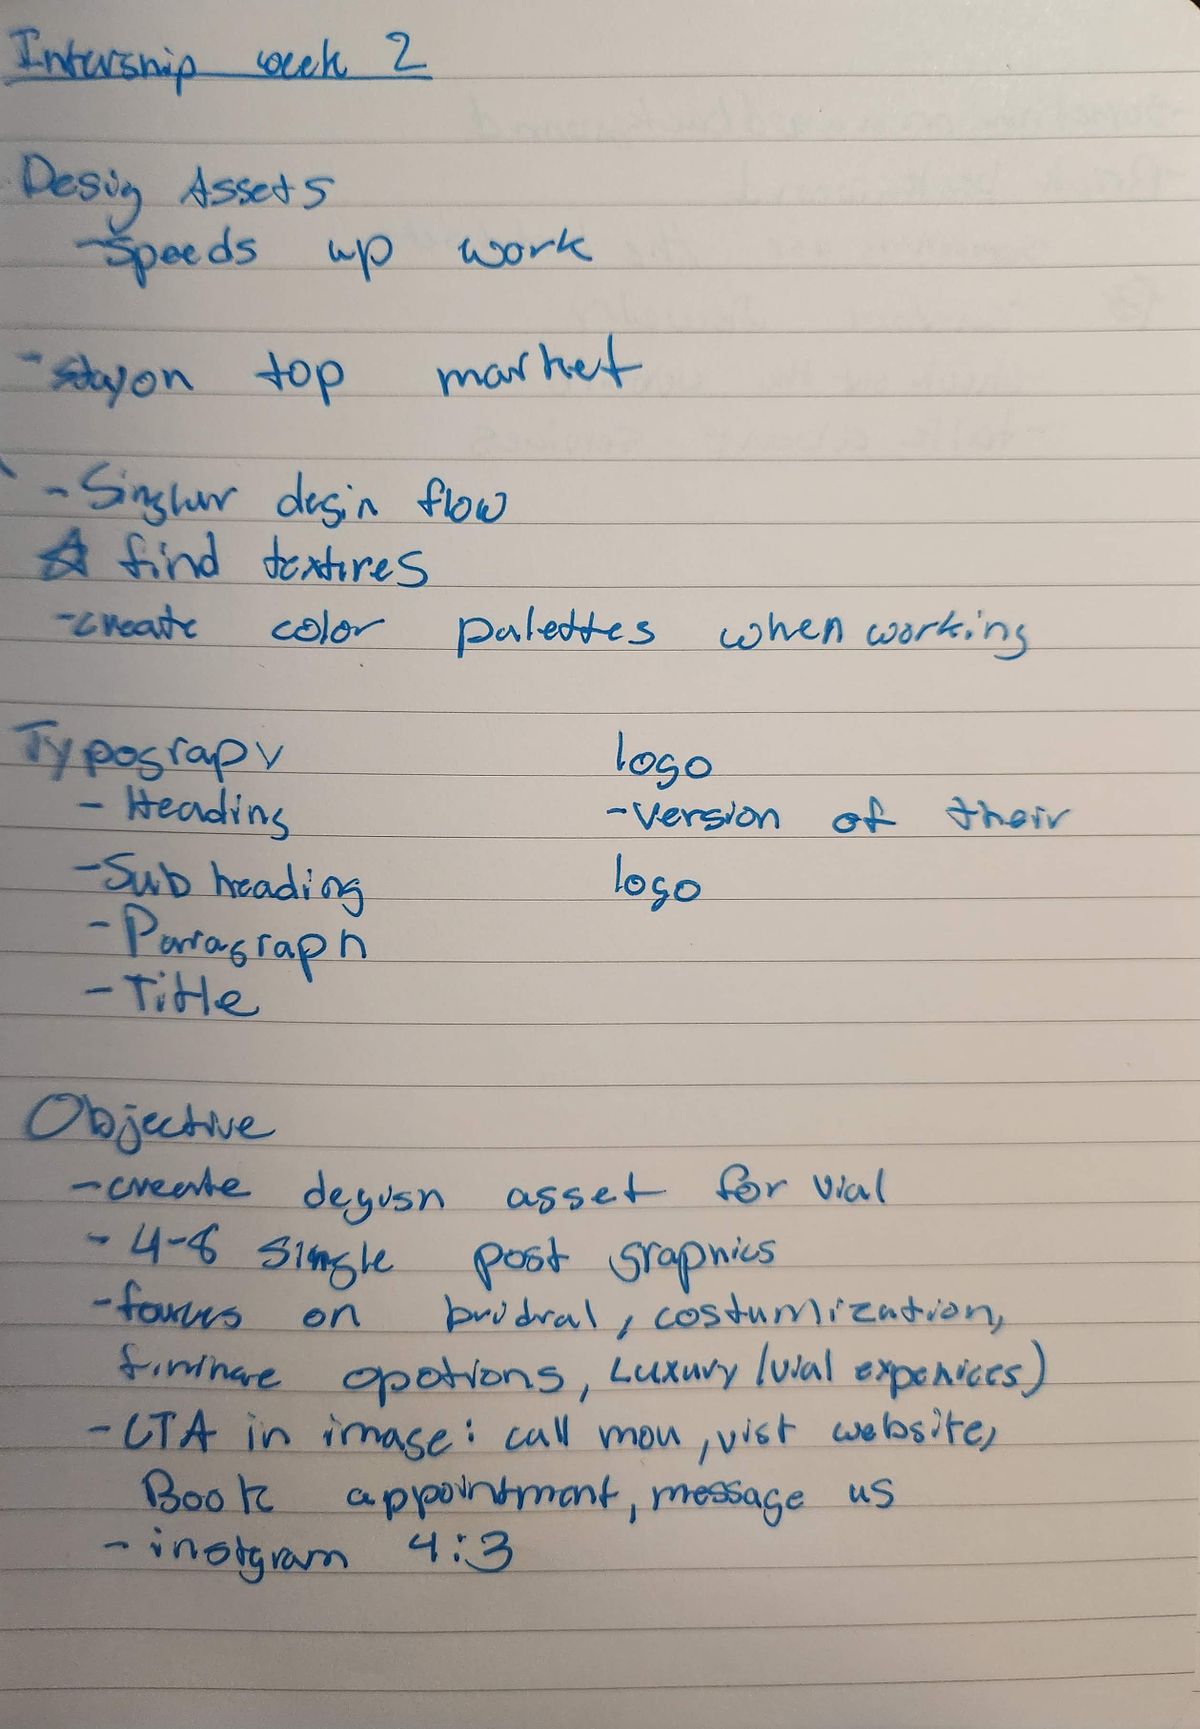 Internship week 2
Desig Assets
-Speeds up work
-stay on top market
-Singlur desgin flow
☆ find textires
-create color palettes when working
Typograpy
logo
- Heading
-version of their
-Sub heading
logo
- Paragraph
- Title
Objective
-create degisn asset for vial
- 4-8 single post graphics
-foucus on bridral, costumization,
fininace opotions, Luxury (vial expenices)
-CTA in image: call mou, vist website,
Book appointment, message us
- instgram 4:3